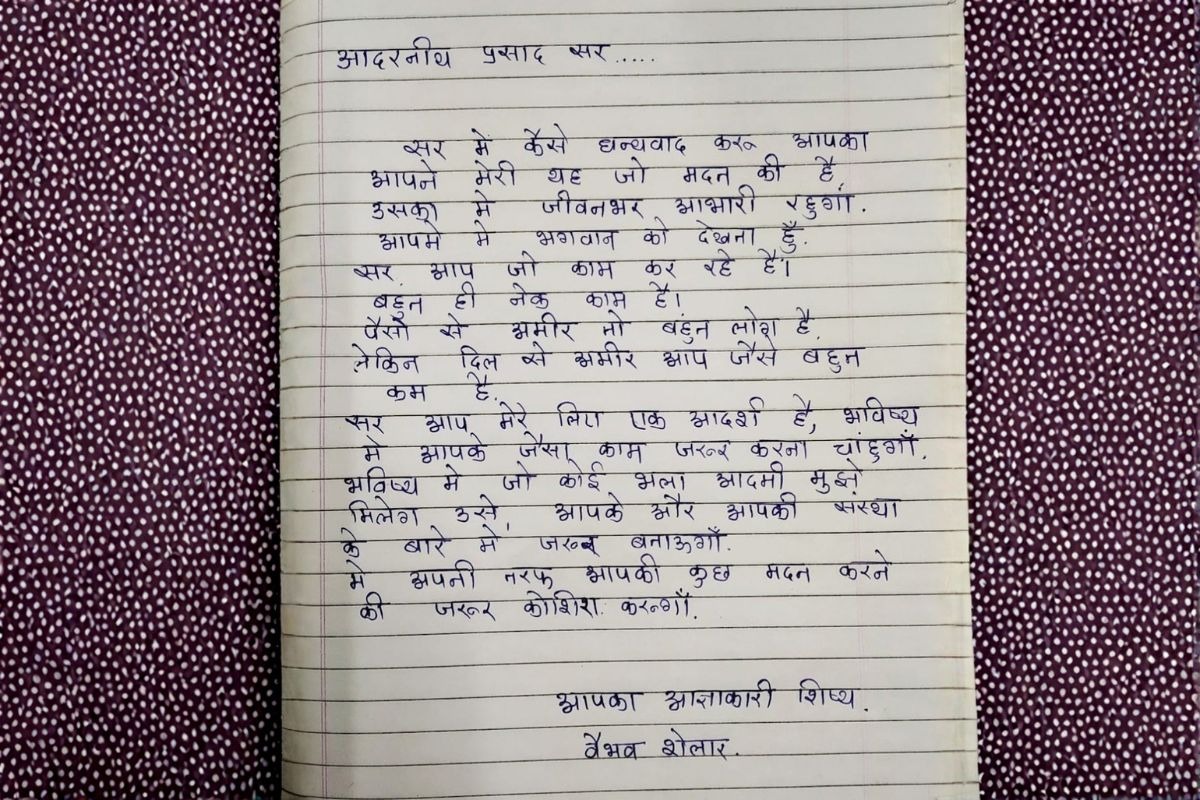 आदरनीय प्रसाद सर.....
सर मे कैसे धन्यवाद करू आपका
आपने मेरी यह जो मदत की है
उसका मे जीवनभर आभारी रहुगां.
आपमे मे भगवान को देखता हुँ.
सर आप जो काम कर रहे है।
बहुत ही नेक काम है।
पैसो से अमीर तो बहुंत लोग है.
लेकिन दिल से अमीर आप जैसे बहुत
कम है.
सर आप मेरे लिए एक आदर्श है, भविष्य
मे आपके जैसा काम जरूर करना चांहुगाँ.
भविष्य मे जो कोई भला आदमी मुझे
मिलेग उसे, आपके और आपकी संस्था
के बारे मे जरूर बताऊगाँ.
मे अपनी तरफ आपकी कुछ मदत करने
की जरूर कोशिश करूगाँ.
आपका आज्ञाकारी शिष्य.
वैभव शेलार.